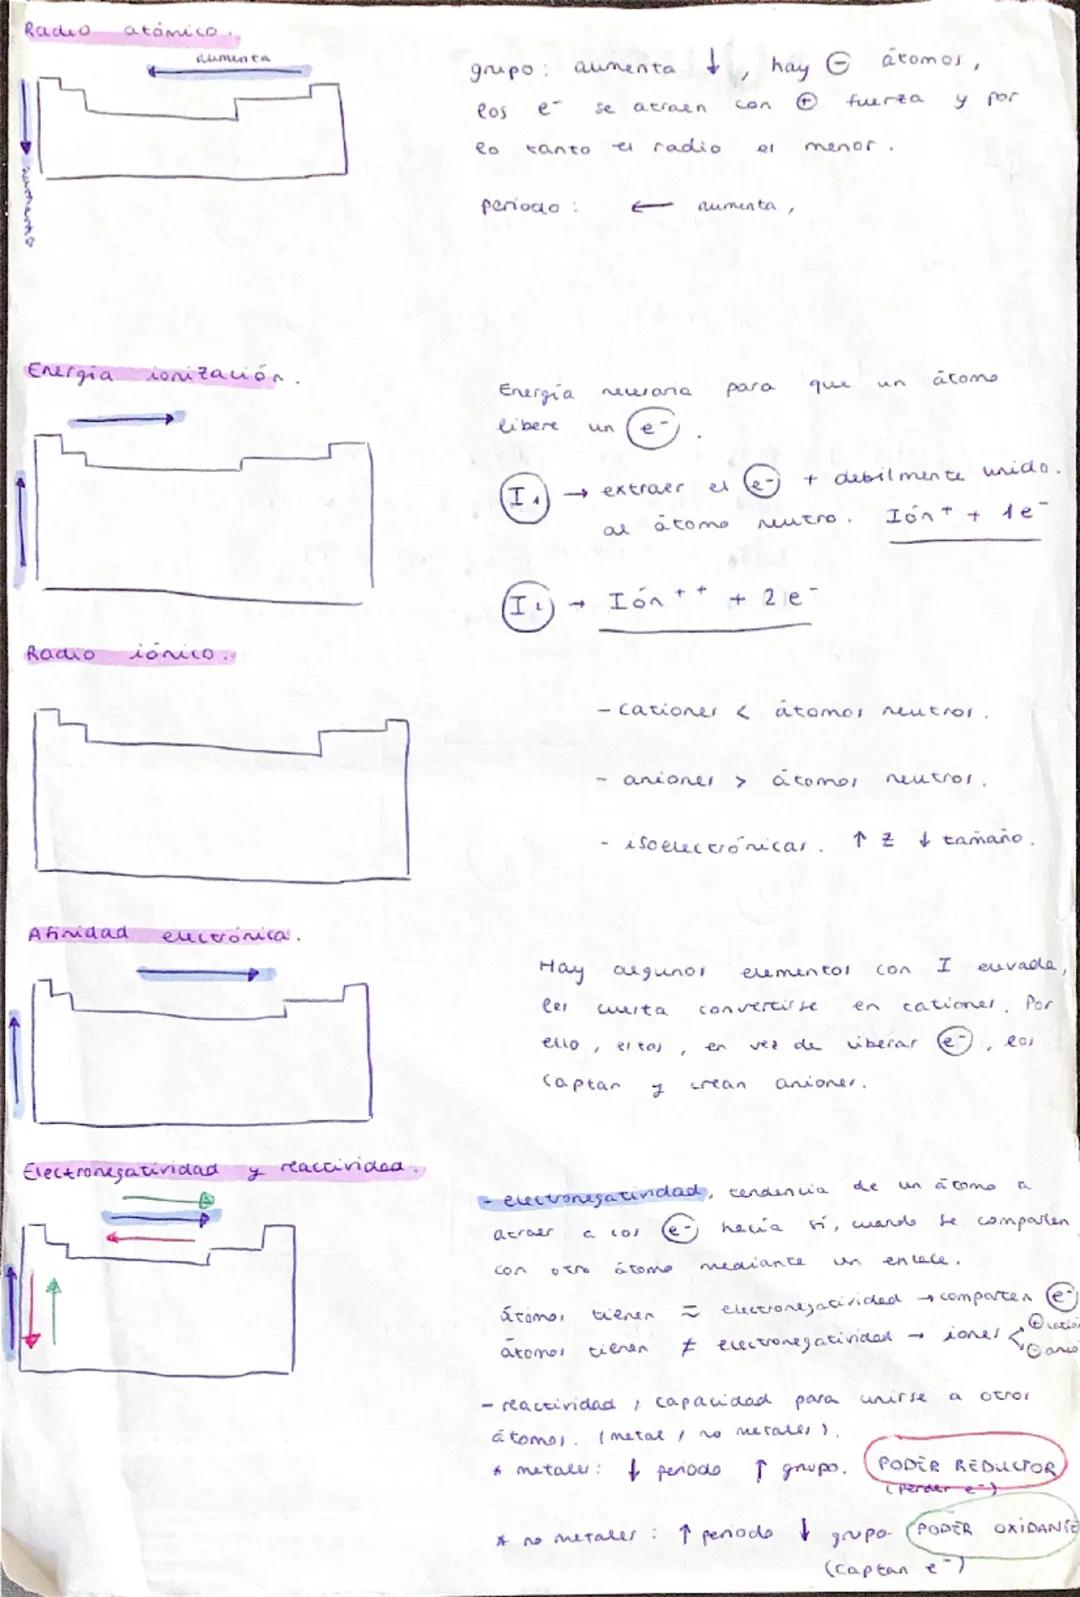 Radio atómico.
aumenta
aumenta
grupo: aumenta ↓, hay ⊖ átomos,
los e⁻ se atraen con ⊕ fuerza y por
lo tanto el radio es menor.
periodo: ← aumenta,
Energía ionización.
Energía necesaria para que un átomo
libere un e⁻.
I₁ → extraer el e⁻ + debilmente unido.
al átomo neutro. Ión⁺ + 1e⁻
I₂ → Ión⁺⁺ + 2e⁻
Radio iónico.
- cationes < átomos neutros.
- aniones > átomos neutros.
- isoelectrónicas. ↑ Z ↓ tamaño.
Afinidad electrónica.
Hay algunos elementos con I elevada,
les cuesta convertirse en cationes. Por
ello, estos, en vez de liberar e⁻, los
captan y crean aniones.
Electronegatividad y reactividad.
- electronegatividad, tendencia de un átomo a
atraer a los e⁻ hacia sí, cuando se comparten
con otro átomo mediante un enlace.
átomos tienen ≈ electronegatividad → comparten e⁻
átomos tienen ≠ electronegatividad → iones < ⊕ catión
⊖ anió
- reactividad, capacidad para unirse a otros
átomos. (metal / no metales).
* metales: ↓ periodo ↑ grupo. PODER REDUCTOR
(Perder e⁻)
* no metales: ↑ periodo ↓ grupo. PODER OXIDANTE
(captan e⁻)